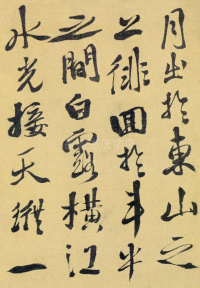 月出於東山之
上徘回於斗牛
之間白露橫江
水光接天縱一